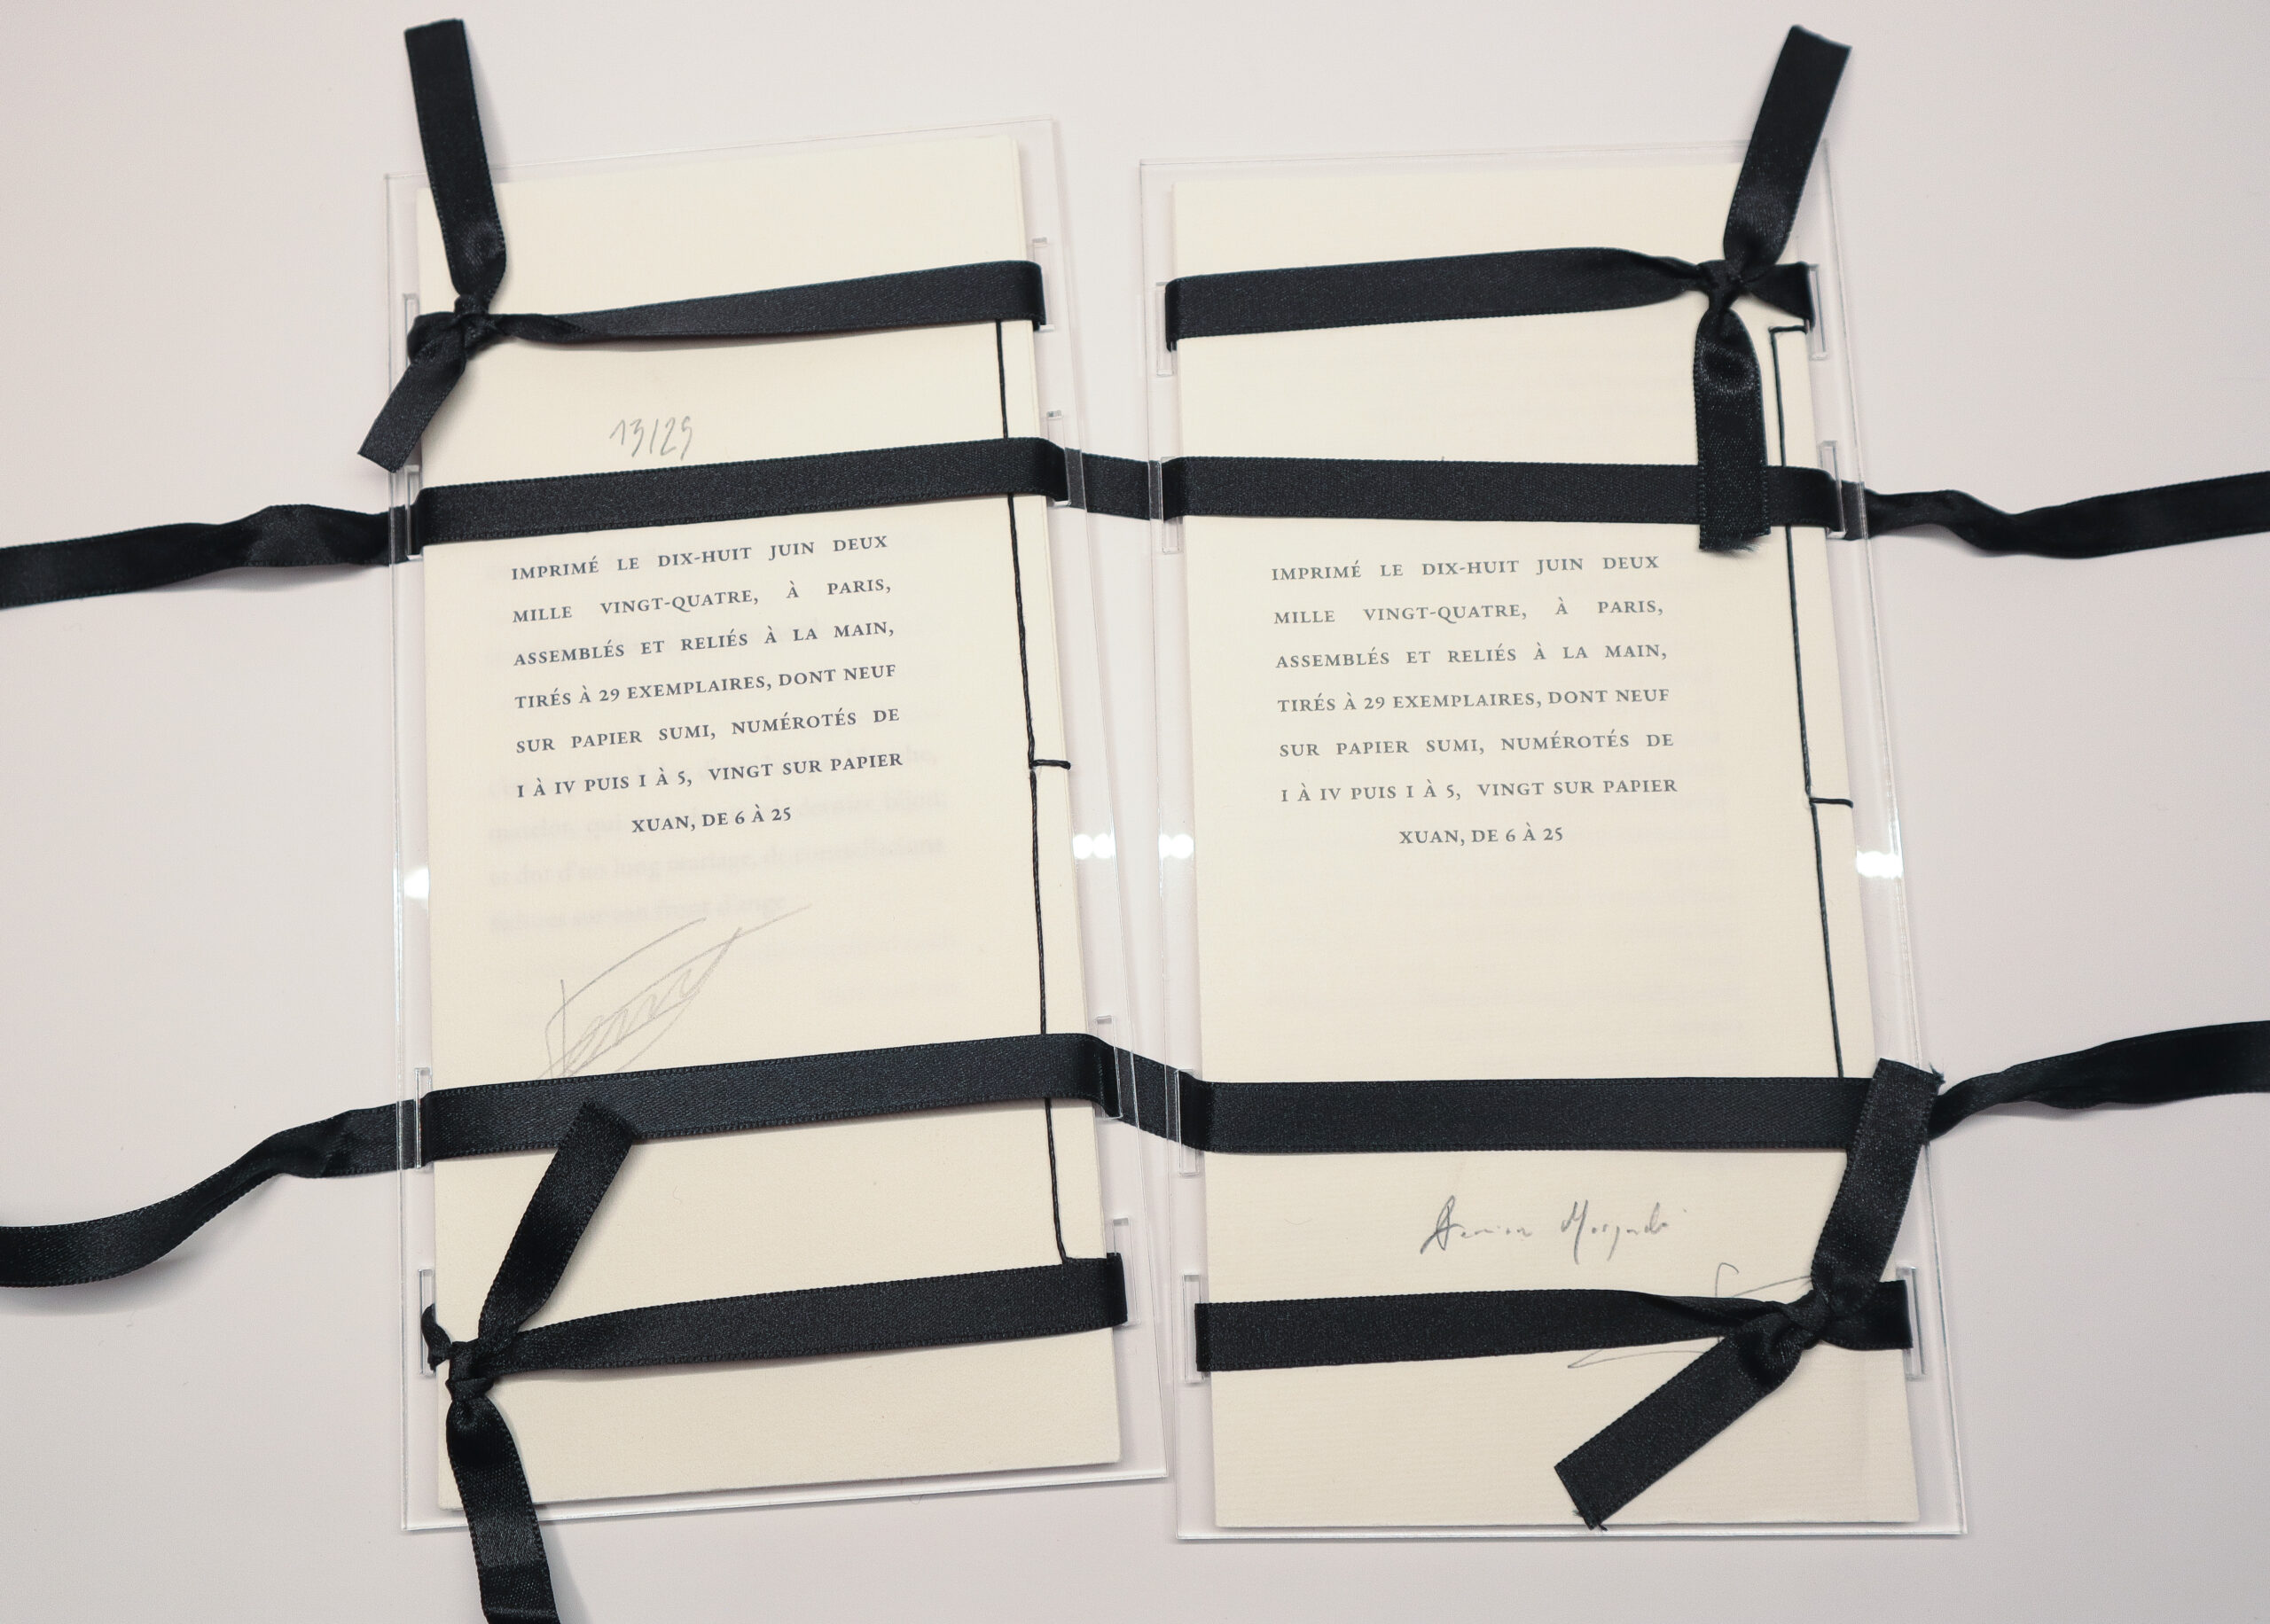 13/25
IMPRIMÉ LE DIX-HUIT JUIN DEUX
MILLE VINGT-QUATRE, À PARIS,
ASSEMBLÉS ET RELIÉS À LA MAIN,
TIRÉS À 29 EXEMPLAIRES, DONT NEUF
SUR PAPIER SUMI, NUMÉROTÉS DE
I À IV PUIS 1 À 5, VINGT SUR PAPIER
XUAN, DE 6 À 25
IMPRIMÉ LE DIX-HUIT JUIN DEUX
MILLE VINGT-QUATRE, À PARIS,
ASSEMBLÉS ET RELIÉS À LA MAIN,
TIRÉS À 29 EXEMPLAIRES, DONT NEUF
SUR PAPIER SUMI, NUMÉROTÉS DE
I À IV PUIS 1 À 5, VINGT SUR PAPIER
XUAN, DE 6 À 25